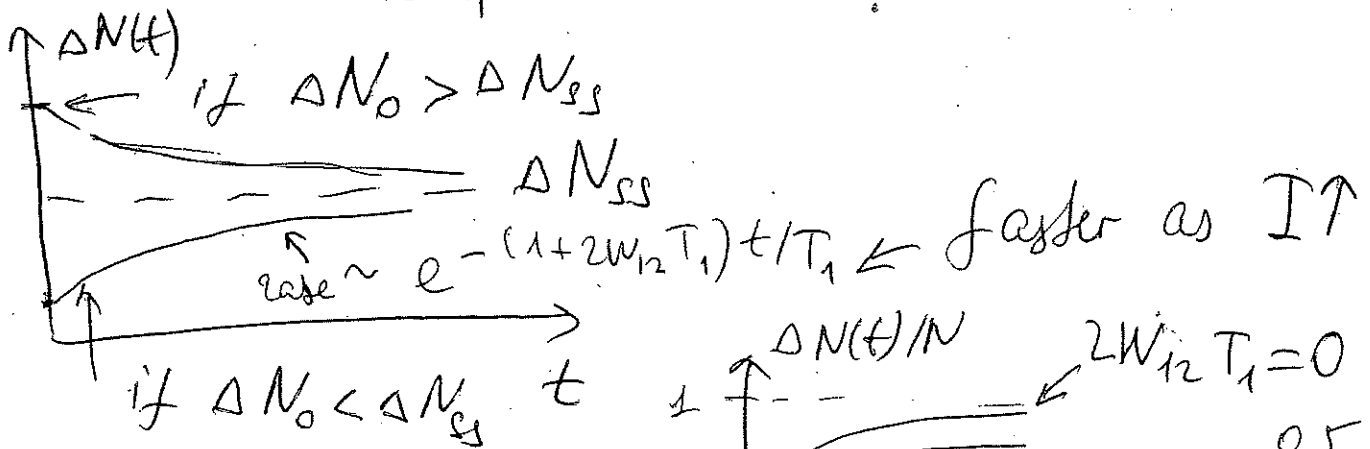 ΔN(t)
if ΔN₀ > ΔN_ss
ΔN_ss
rate ~ e^-(1+2W₁₂T₁)t/T₁ ← faster as I↑
if ΔN₀ < ΔN_ss
t
ΔN(t)/N
2W₁₂T₁=0
1